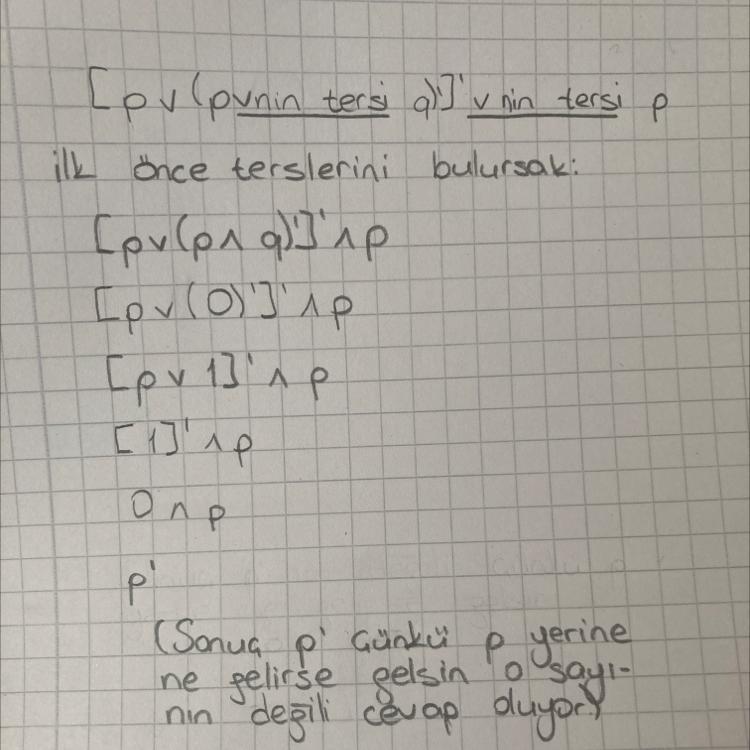 [p∨(p∨nin tersi q)']'∨nin tersi p
ilk önce terslerini bulursak:
[p∨(p∧q)']'∧p
[p∨(0)']'∧p
[p∨1]'∧p
[1]'∧p
0∧p
p'
(Sonuç p' Çünkü p yerine
ne gelirse gelsin o sayı-
nın değili cevap oluyor)